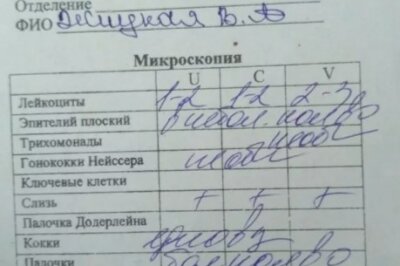 Отделение
ФИО В. А
Микроскопия
U C V
Лейкоциты 1-2 1-2 2-3
Эпителий плоский в небол. кол-во
Трихомоналы необ
Гонококки Нейссера необ
Ключевые клетки
Слизь + + +
Палочка Додерлейна
Кокки
Палочки